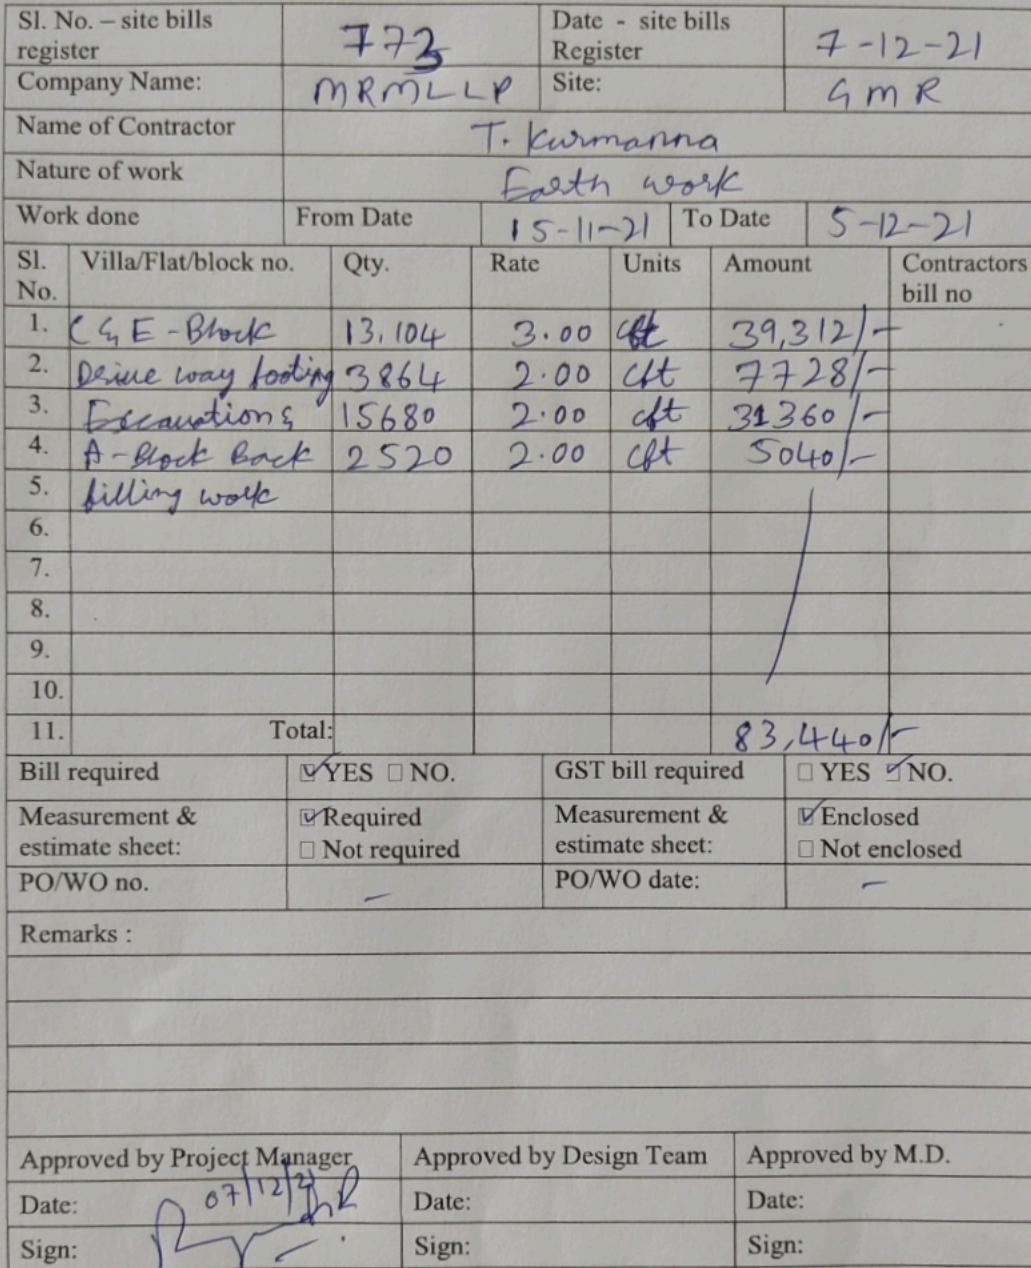 Sl. No. – site bills register 773 Date - site bills Register 7-12-21
Company Name: MRMLLP Site: GMR
Name of Contractor T. Kurmanna
Nature of work Earth work
Work done From Date 15-11-21 To Date 5-12-21
Sl. No. Villa/Flat/block no. Qty. Rate Units Amount Contractors bill no
1. C & E - Block 13,104 3.00 cft 39,312/-
2. Drive way footing 3864 2.00 cft 7728/-
3. Excavation & 15680 2.00 cft 31360/-
4. A-Block Back 2520 2.00 cft 5040/-
5. filling work
6.
7.
8.
9.
10.
11. Total: 83,440/-
Bill required ☑ YES ☐ NO. GST bill required ☐ YES ☑ NO.
Measurement & estimate sheet: ☑ Required ☐ Not required Measurement & estimate sheet: ☑ Enclosed ☐ Not enclosed
PO/WO no. – PO/WO date: –
Remarks :
Approved by Project Manager Approved by Design Team Approved by M.D.
Date: 07/12/21 Date: Date:
Sign: Sign: Sign: